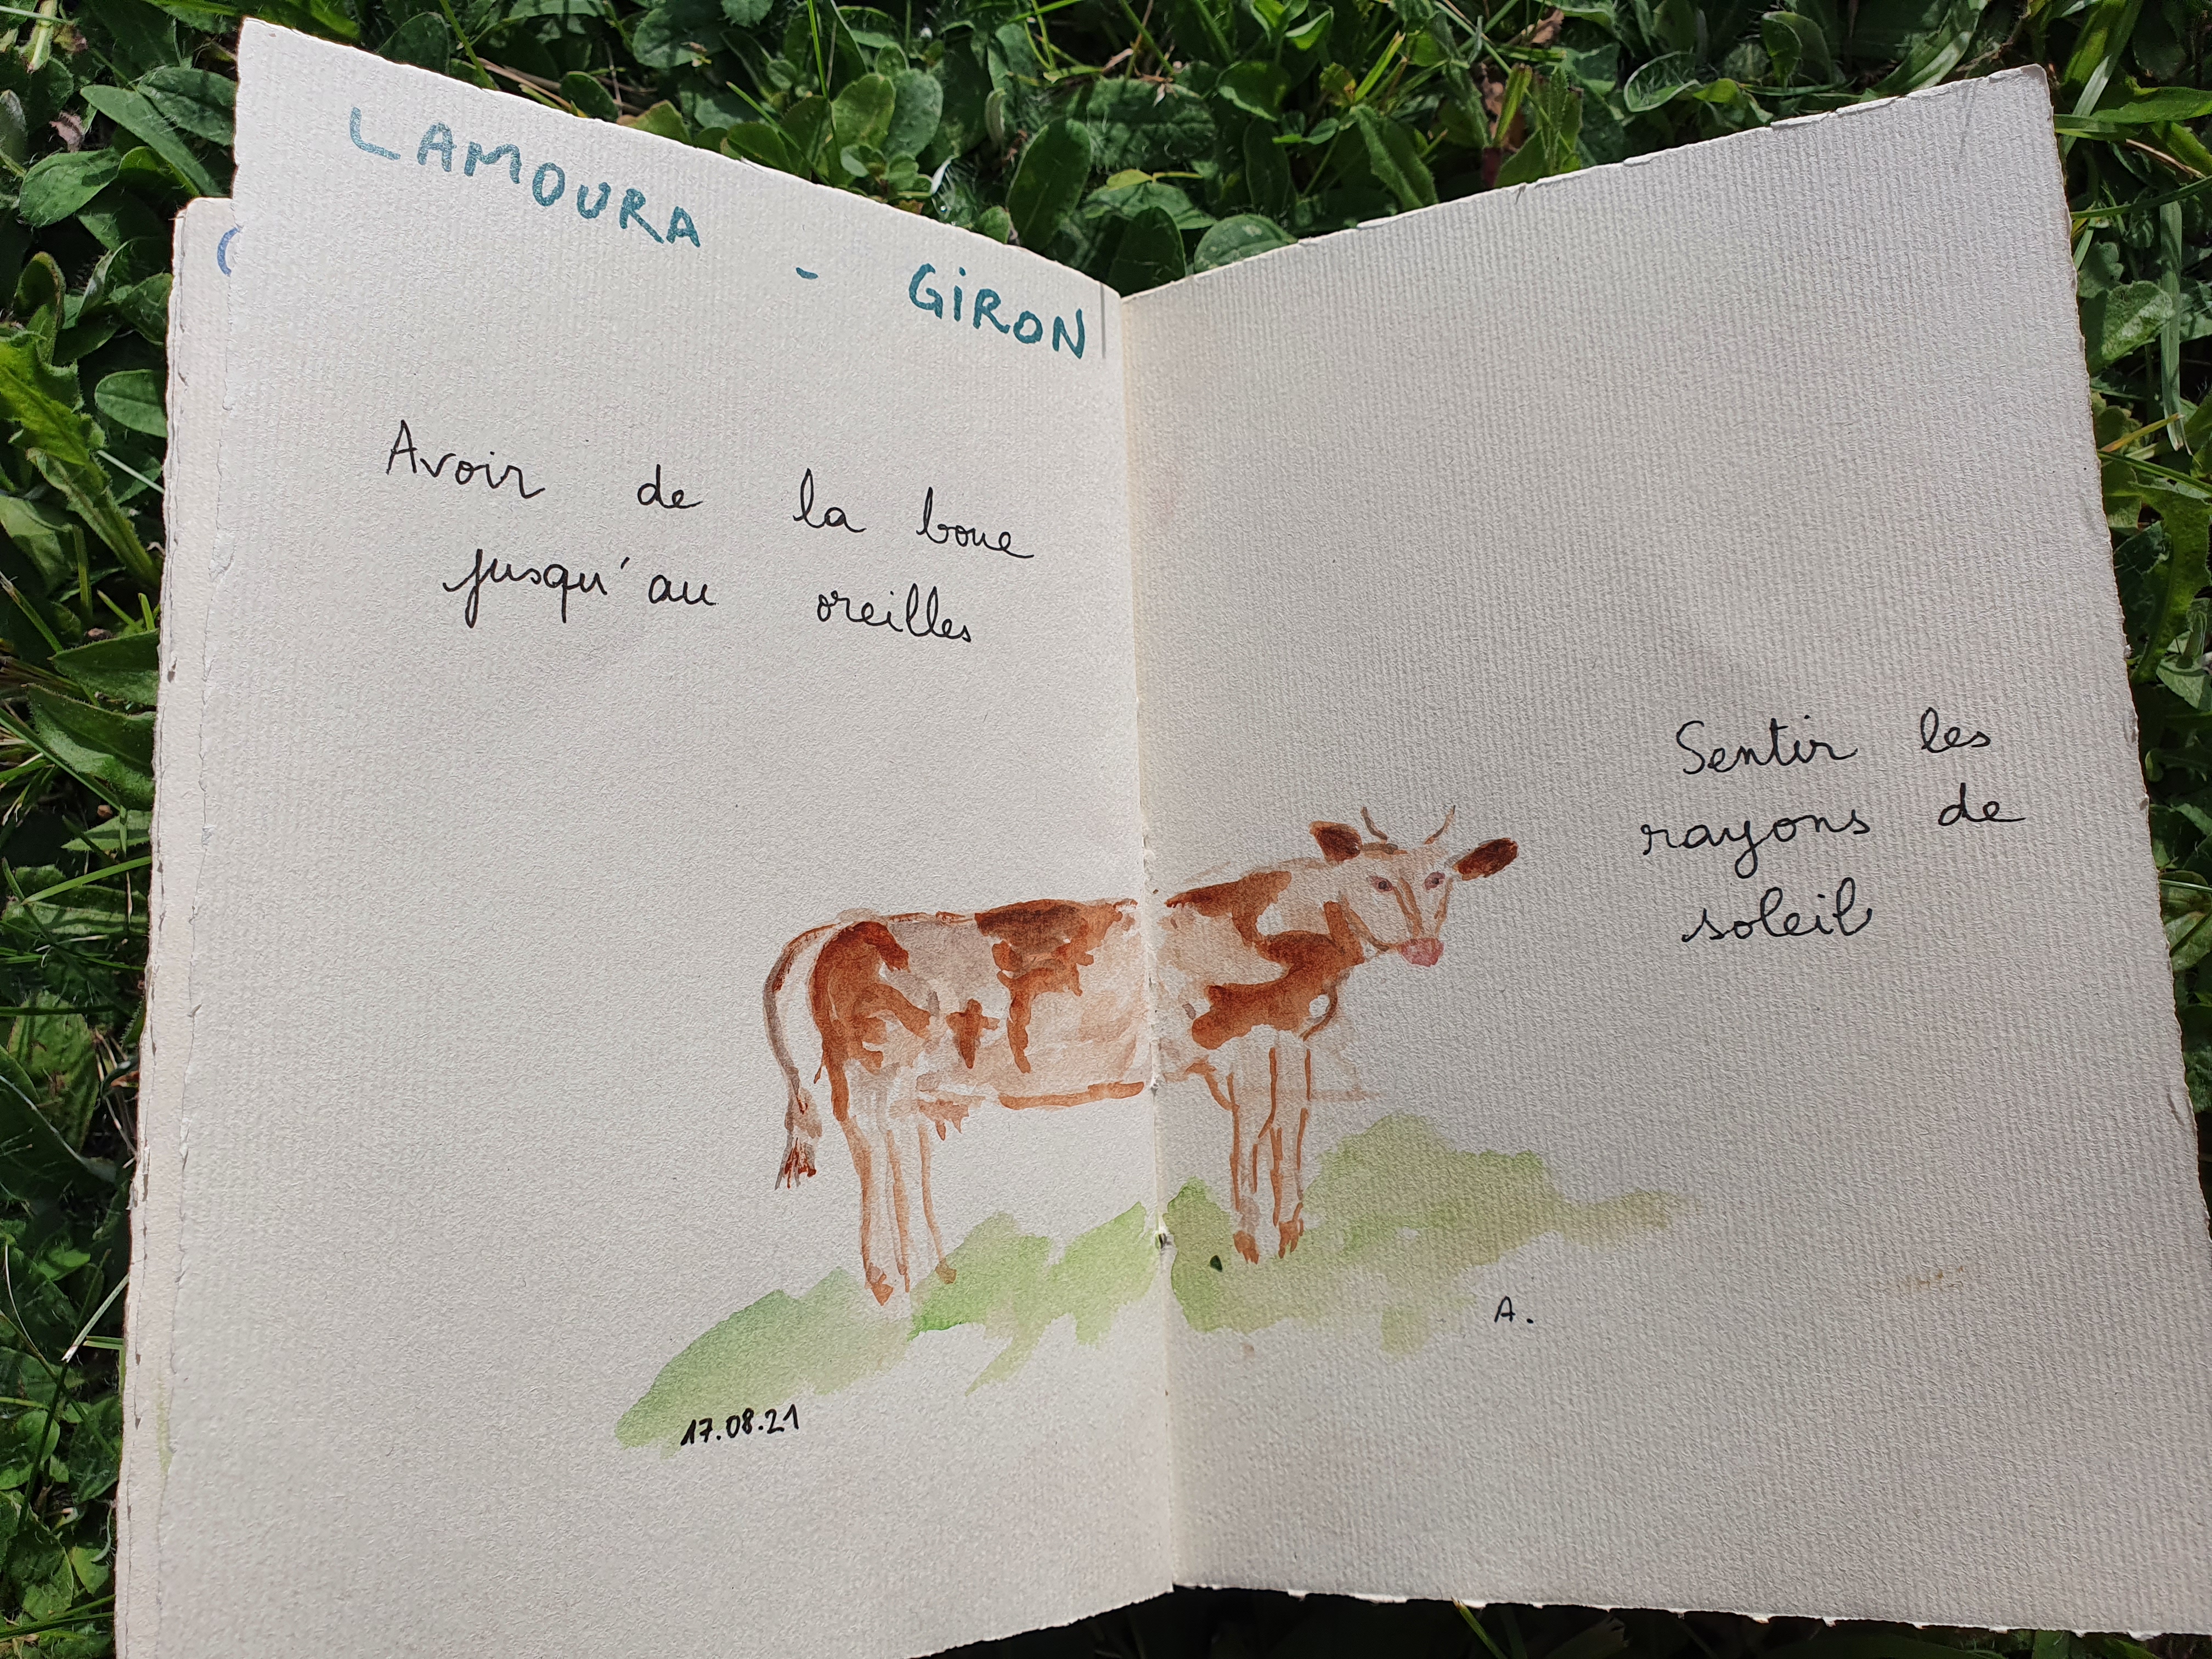 LAMOURA - GiRON
Avoir de la boue
jusqu'au oreilles
Sentir les
rayons de
soleil
A.
17.08.21